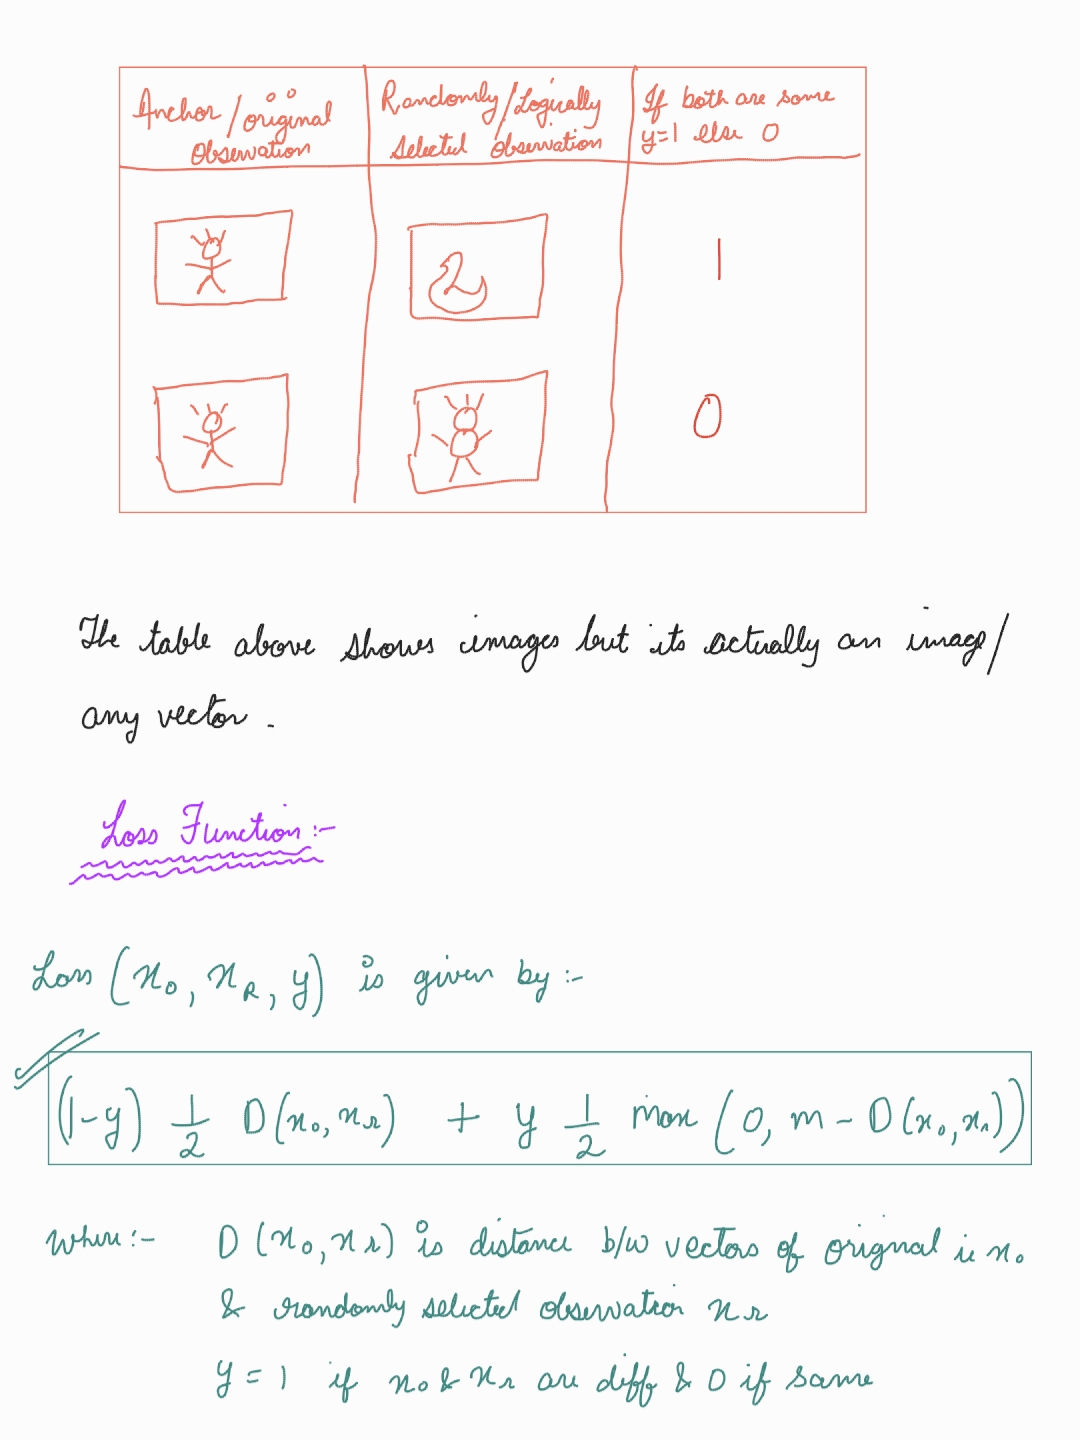 Anchor/original
Observation
Randomly/Logically
Selected Observation
If both are same
y=1 else 0
1
0
The table above shows images but its actually an image/
any vector.
Loss Function:-
Loss (x₀, x_R, y) is given by:-
(1-y) 1/2 D(x₀, x_r) + y 1/2 max (0, m - D(x₀, x_r))
where:- D(x₀, x_r) is distance b/w vectors of orignal ie x₀
& randomly selected observation x_r
y = 1 if x₀ & x_r are diff & 0 if same